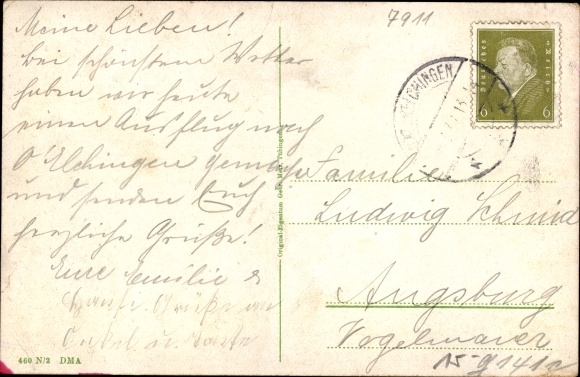 Meine Lieben!
bei schönstem Wetter
haben wir heute
einen Ausflug nach
O'Elchingen gemacht
und senden Euch
herzliche Grüße!
Eure Emilie &
Grüße an
Onkel u. Tante
460 N/2 DMA
Original-Eigentum Gebr. Metz, Tübingen
7911
CHINGEN
Deutsches Reich
6 6
Familie
Ludwig Schmid
Augsburg
Vogelmauer